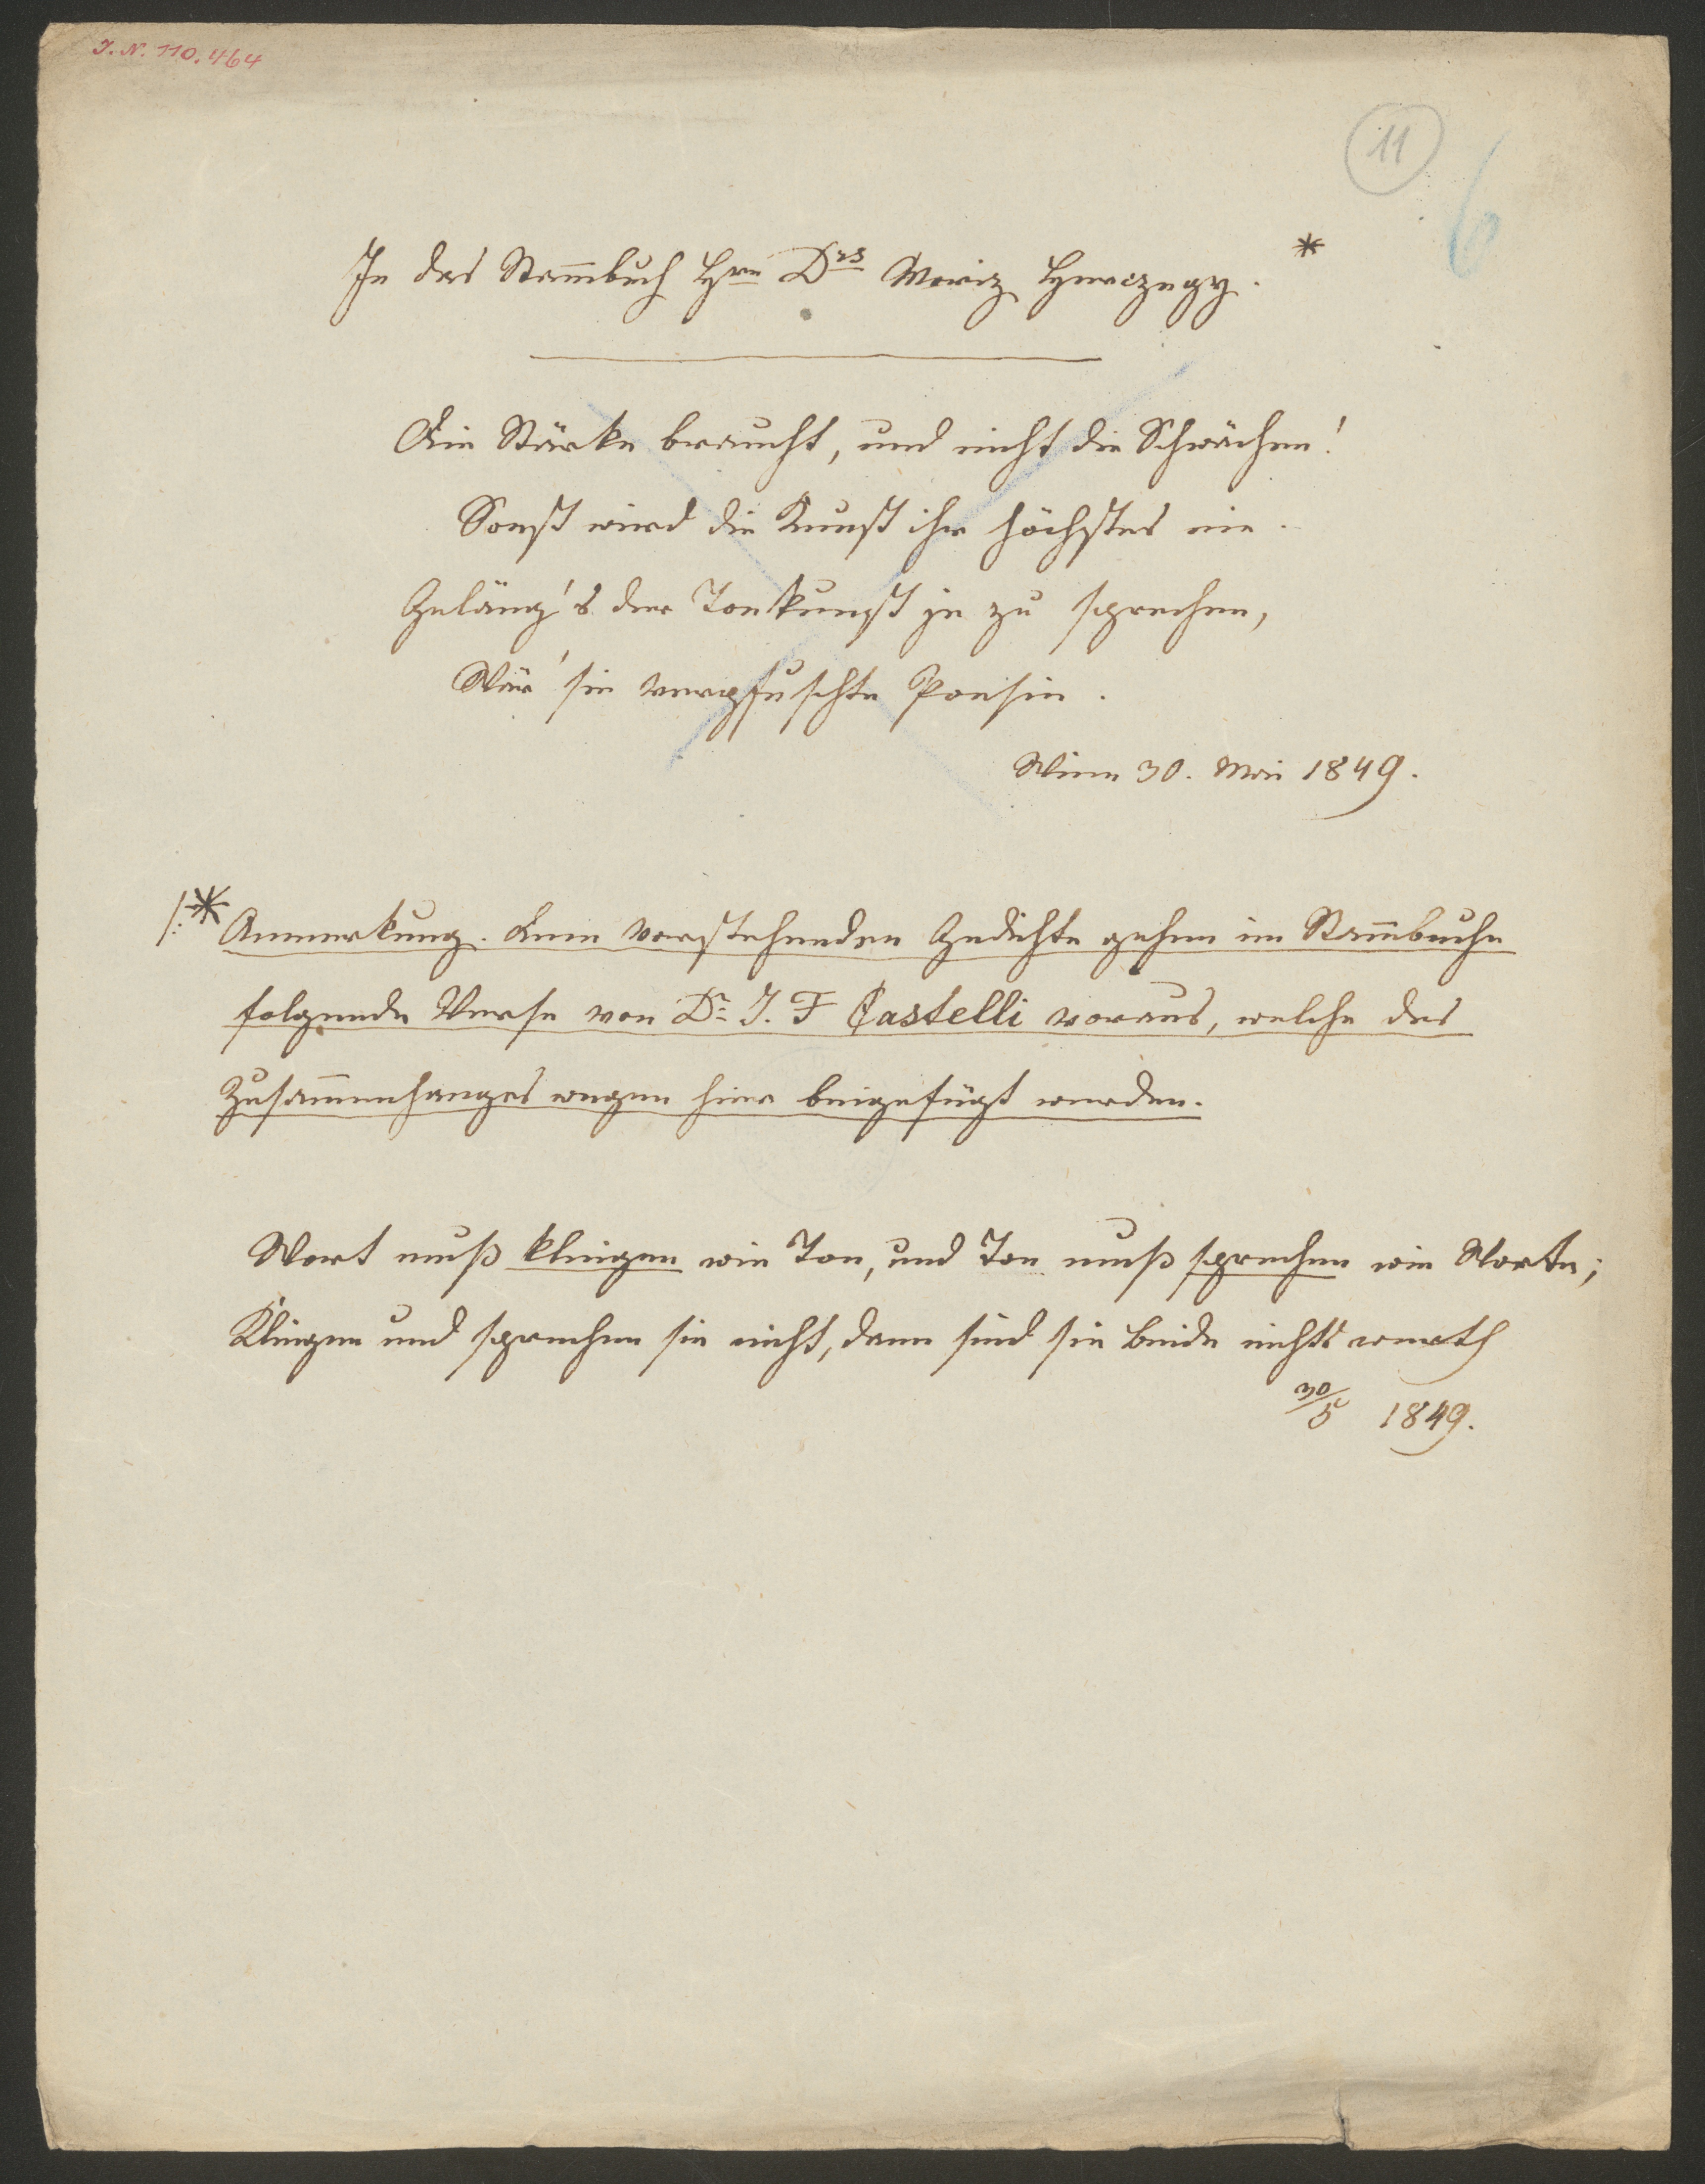 J. N. 110.464
11
6
In das Stam̄buch Hrn Drs Moriz Herczegy. *
Die Stärke braucht, und nicht die Schwächen!
Sonst wird die Kunst ihr höchstes nie.
Geläng's der Tonkunst je zu sprechen,
Wär' sie verpfuschte Poesie.
Wien 30. Mai 1849.
/:* Anmerkung. Dem vorstehenden Gedichte gehen im Stam̄buche
folgende Verse von Dr. J. F Castelli voraus, welche des
Zusam̄enhanges wegen hier beigefügt werden.
Wort muß klingen wie Ton, und Ton muß sprechen wie Worte;
Klingen und sprechen sie nicht, dann sind sie beide nichts werth
30/5 1849.